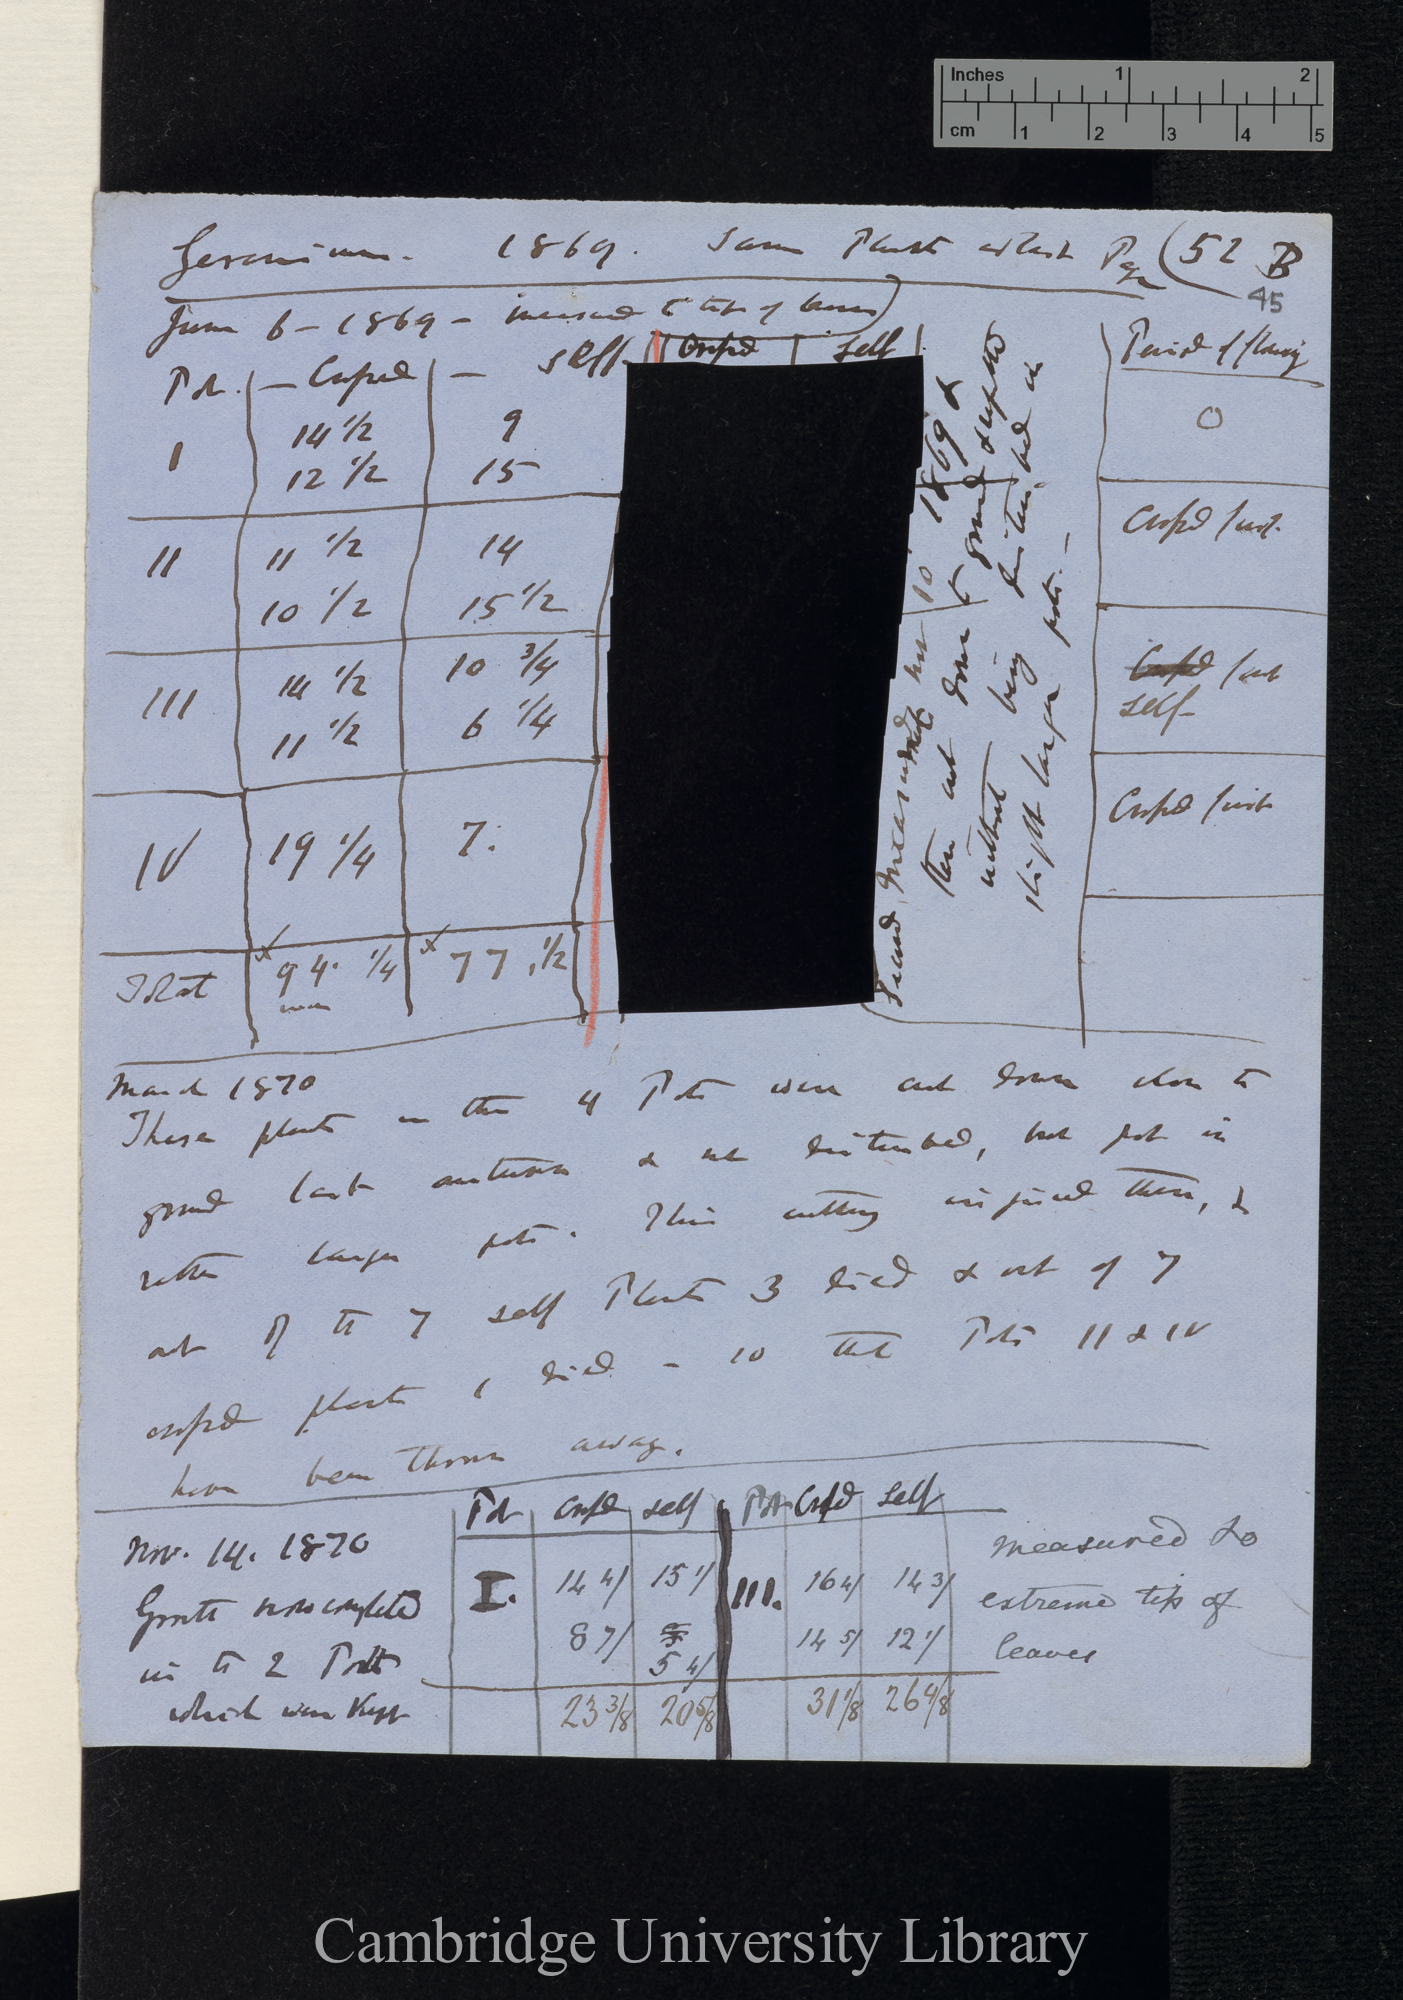 Inches 1 2
cm 1 2 3 4 5
Geranium. 1869. Same Plants as last Page (52 B
45
June 6 - 1869 - measured to tip of leaves)
Pot. - Crossed - Self Crossed Self Period of flowering
I 14 1/2 9 0
12 1/2 15
II 11 1/2 14 Crossed first.
10 1/2 15 1/2
III 14 1/2 10 3/4 Crossed first
11 1/2 6 1/4 self-
IV 19 1/4 7. Crossed first
Total x 94. 1/4 x 77. 1/2
Second measurement Nov 10. 1869 &
then cut down to ground & repotted
without being disturbed in
slight larger pots. -
March 1870
These plants in the 4 Pots were cut down close to
ground last autumn & not disturbed, but put in
rather larger pots. This cutting injured them, &
out of the 7 self Plants 3 died & out of 7
crossed plants 1 died - so that Pots II & IV
have been thrown away.
Pot Crossed self Pot Crossed Self
Nov. 14. 1870
Growth now completed
in the 2 Pots
which were kept
I. 14 4/ 15 1/ III. 16 4/ 14 3/
8 7/ 5 4/ 14 5/ 12 1/
23 3/8 20 5/8 31 1/8 26 4/8
measured to
extreme tips of
leaves
Cambridge University Library